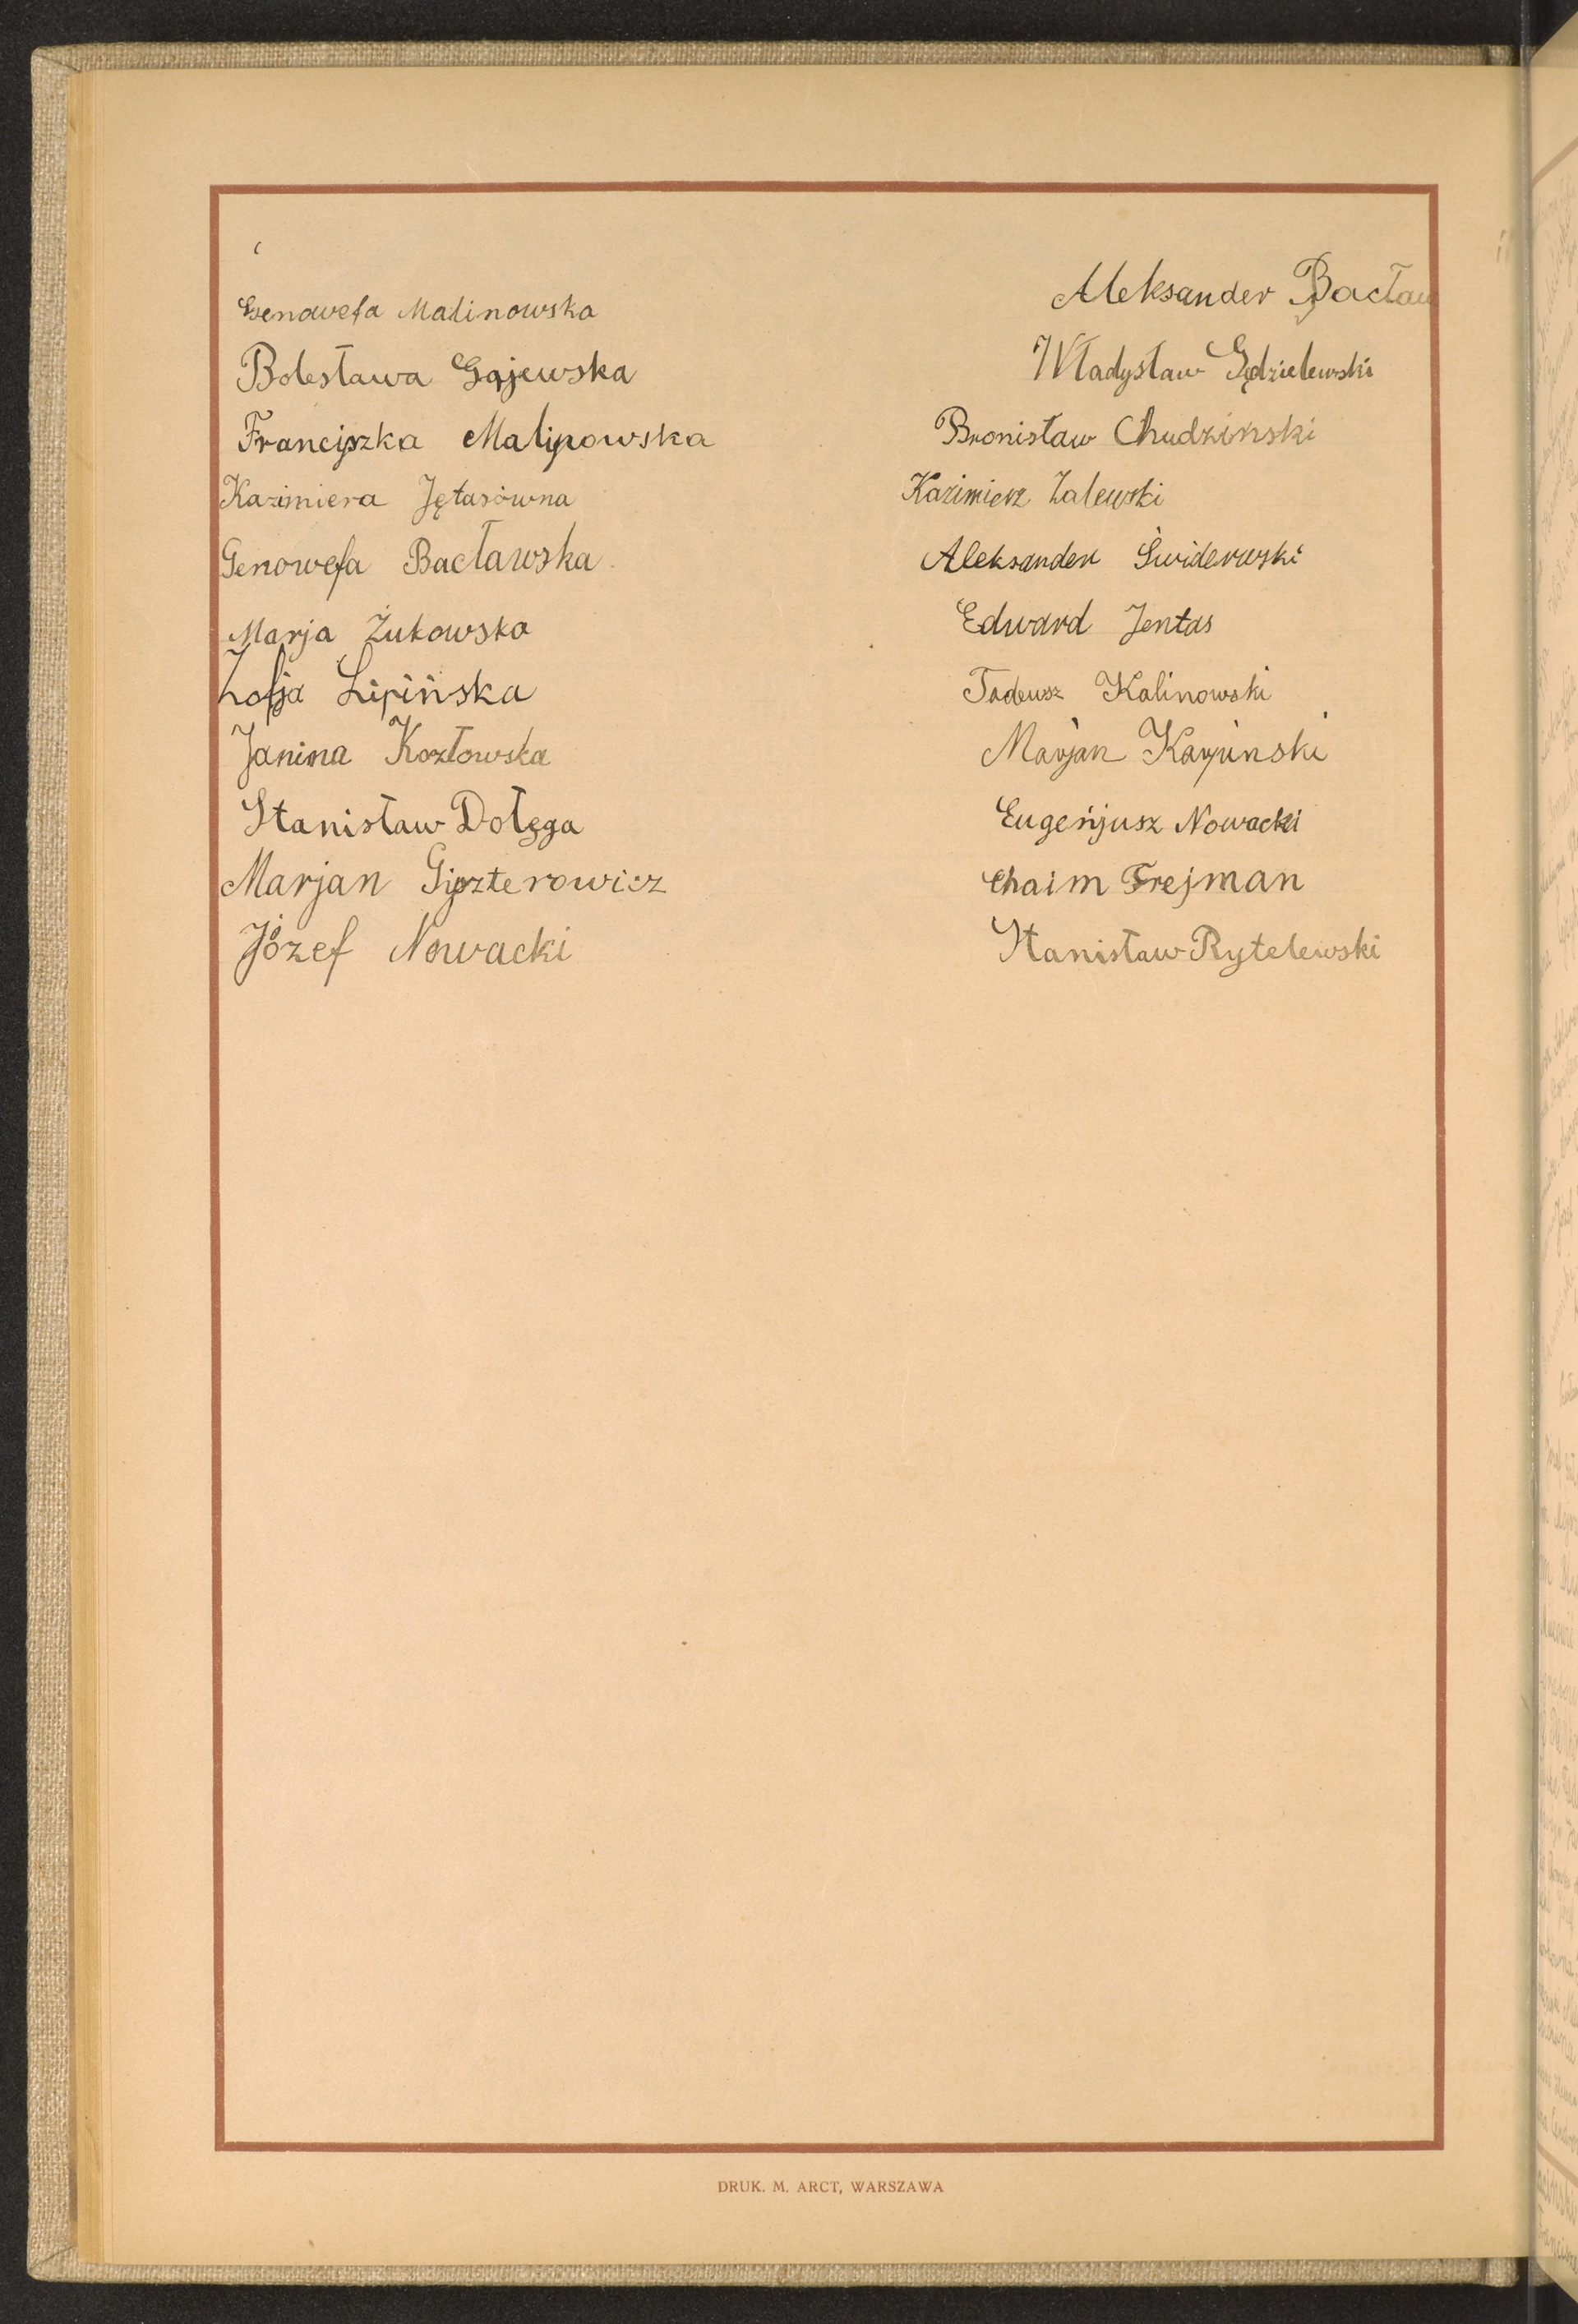 Genowefa Malinowska
Bolesława Gajewska
Franciszka Malinowska
Kazimiera Jętasówna
Genowefa Bacławska
Marja Żukowska
Zofja Lipińska
Janina Kozłowska
Stanisław Dołęga
Marjan Giszterowicz
Józef Nowacki
Aleksander Bacław
Władysław Gędzielewski
Bronisław Chudzinski
Kazimierz Zalewski
Aleksander Świderwski
Edward Jentas
Tadeusz Kalinowski
Marjan Karpinski
Eugenjusz Nowacki
Chaim Frejman
Stanisław Rytelewski
DRUK. M. ARCT, WARSZAWA